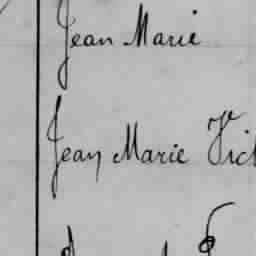 Jean Marie
Jean Marie Vict